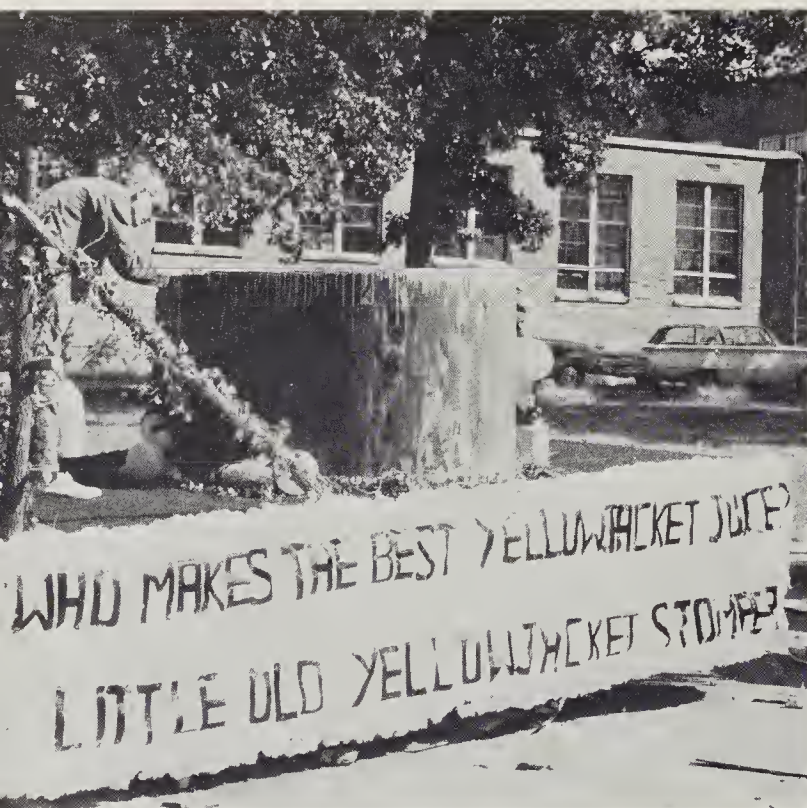 WHO MAKES THE BEST YELLOWJACKET JUICE?
LITTLE OLD YELLOWJACKET STOMPER